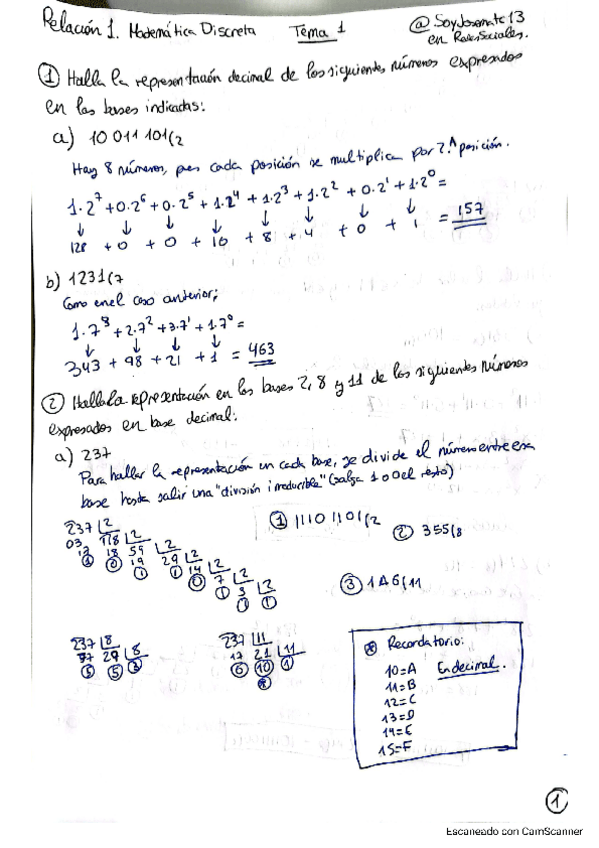 Relación 1. Matemática Discreta Tema 1 @SoyJosemate13
en Redes Sociales.
① Halla la representación decimal de los siguientes números expresados
en las bases indicadas:
a) 10 011 101(2
Hay 8 números, pues cada posición se multiplica por 2.^posición.
1·2^7 + 0·2^6 + 0·2^5 + 1·2^4 + 1·2^3 + 1·2^2 + 0·2^1 + 1·2^0 =
↓ ↓ ↓ ↓ ↓ ↓ ↓ ↓
128 + 0 + 0 + 16 + 8 + 4 + 0 + 1 = 157
b) 1231(7
Como en el caso anterior;
1·7^3 + 2·7^2 + 3·7^1 + 1·7^0 =
↓ ↓ ↓ ↓
343 + 98 + 21 + 1 = 463
② Halla la representación en las bases 2, 8 y 11 de los siguientes números
expresados en base decimal:
a) 237
Para hallar la representación en cada base, se divide el número entre esa
base hasta salir una "división irreducible" (salga 1 o 0 el resto)
① 11101101(2
② 355(8
237 |2
03 118 |2
18 59 |2
19 29 |2
14 |2
7 |2
3 |2
③ 1A6(11
237 |8
77 29 |8
⑤ ⑤ ③
237 |11
17 21 |11
⑥ ⑩ ①
⊛
⊛ Recordatorio:
10=A En decimal.
11=B
12=C
13=D
14=E
15=F
①
Escaneado con CamScanner